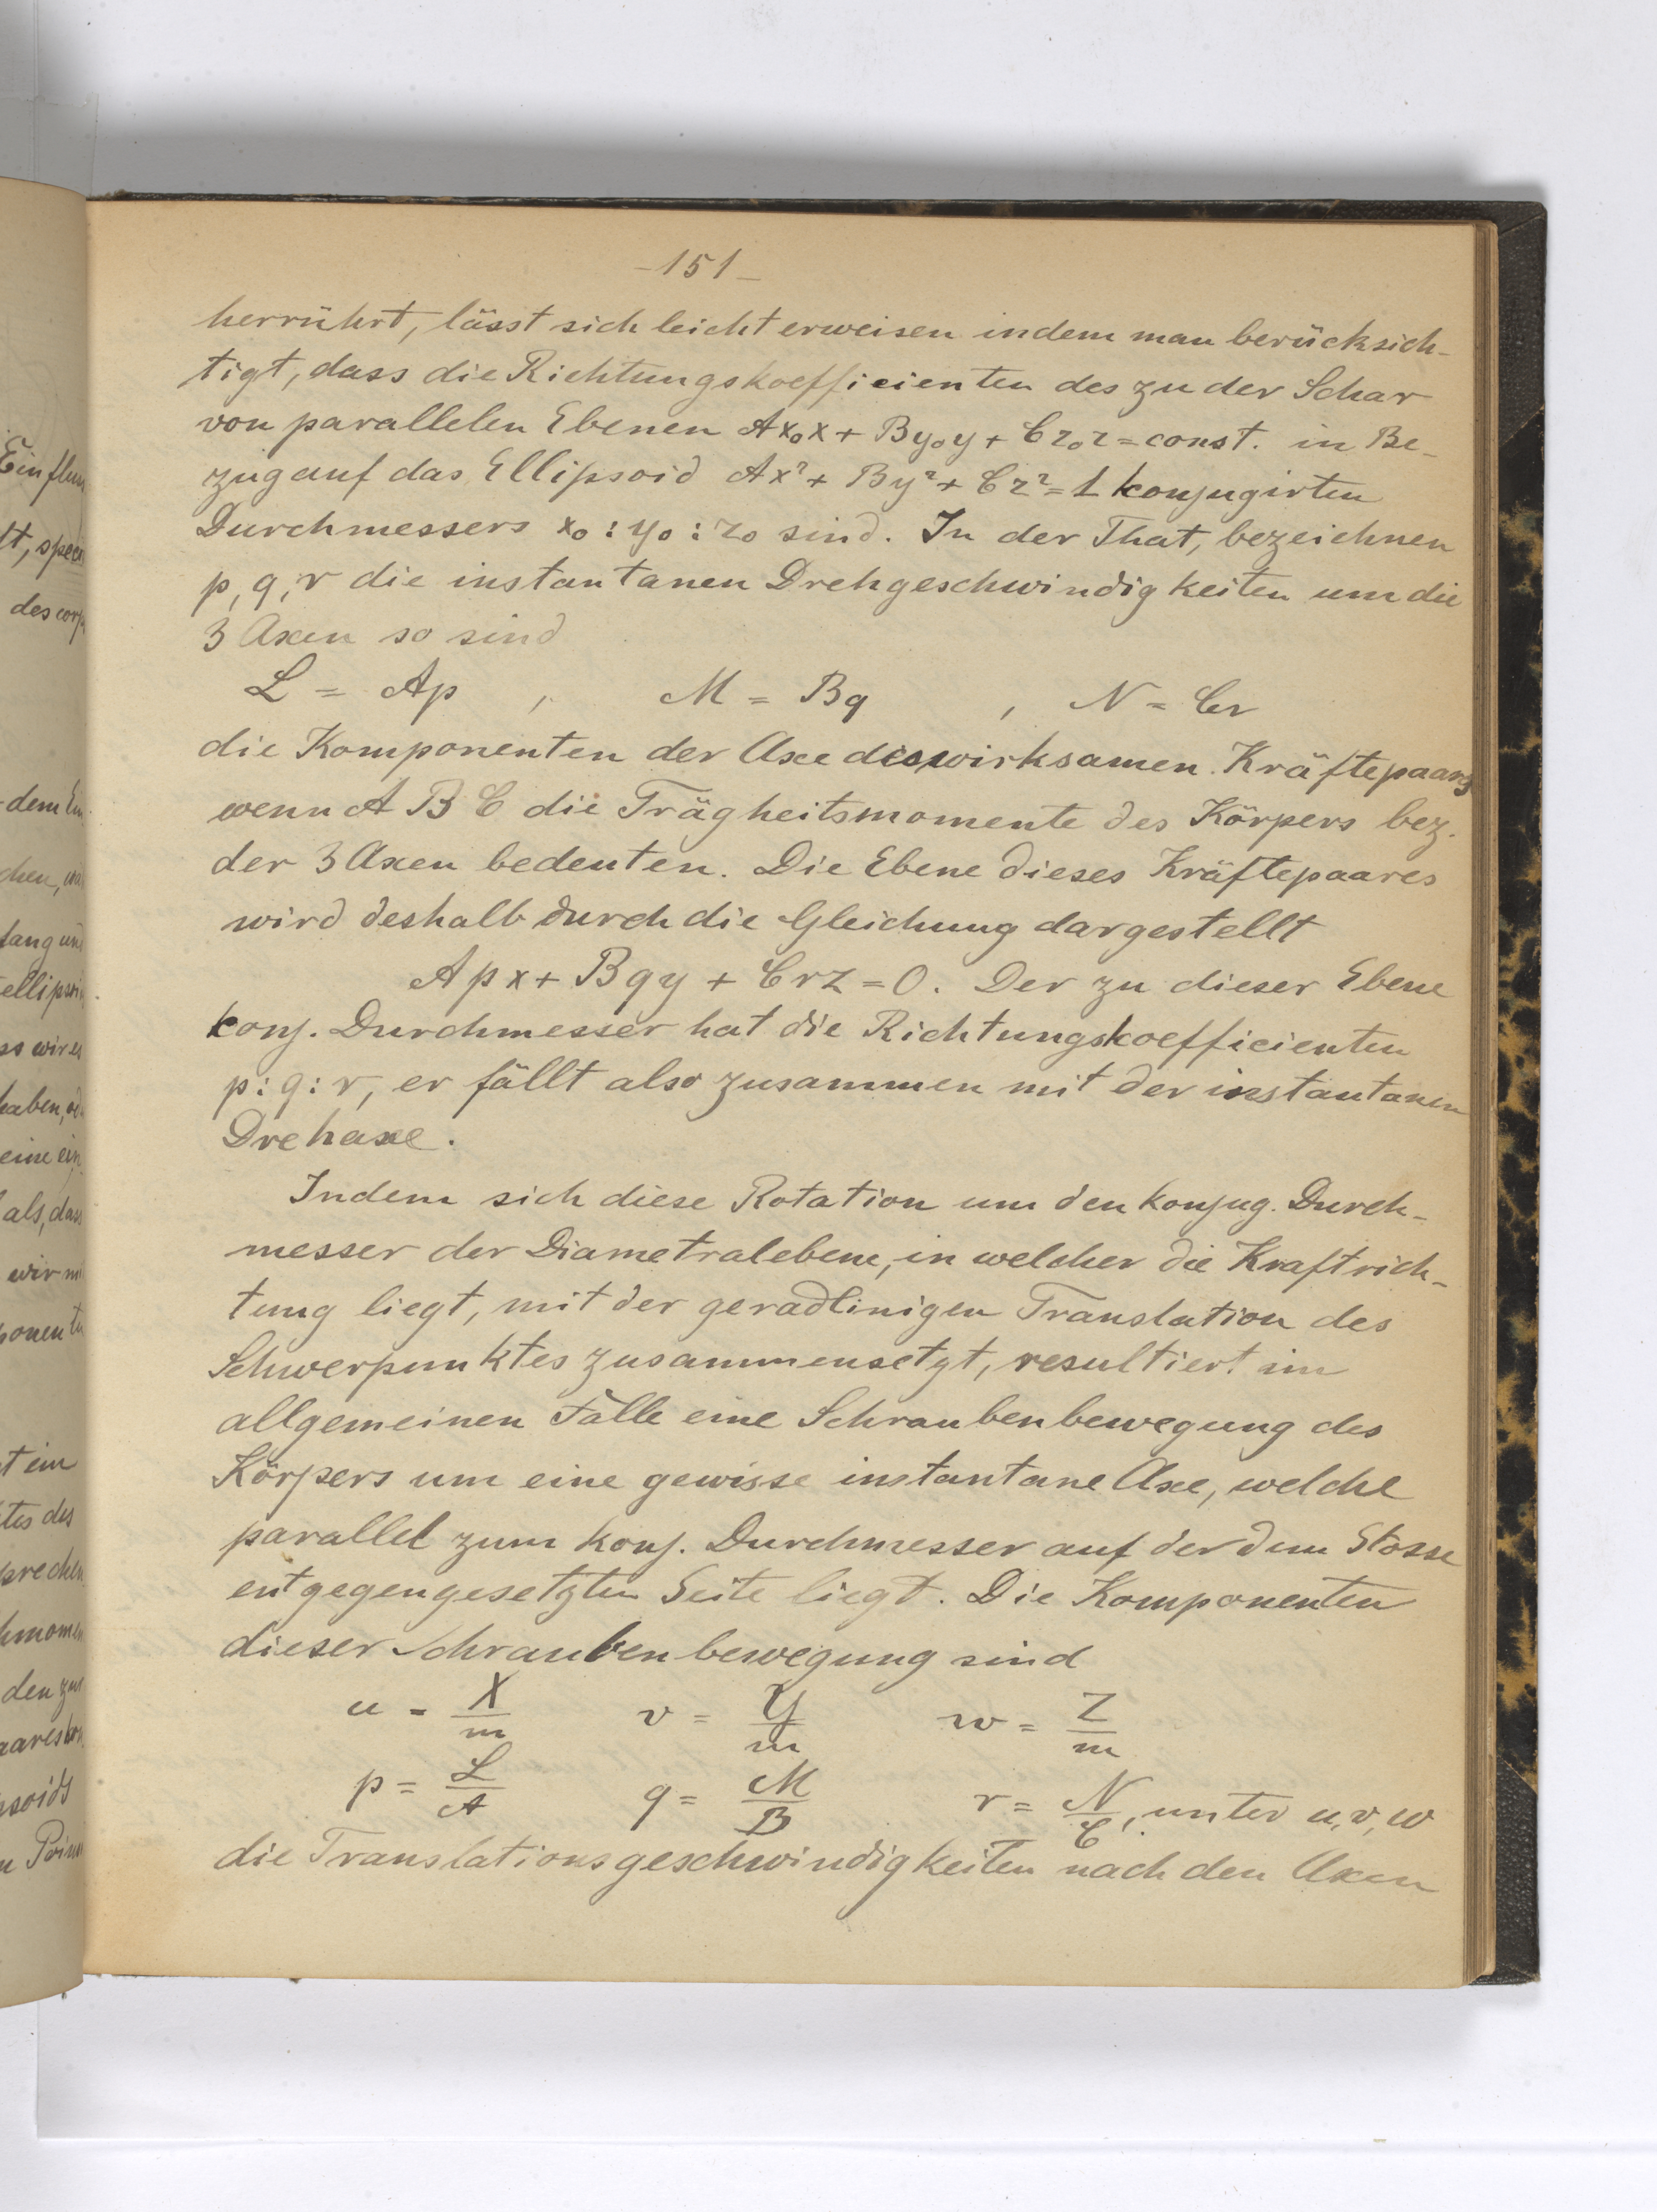 -151-
herrührt, lässt sich leicht erweisen indem man berücksich-
tigt, dass die Richtungskoefficienten des zu der Schar
von parallelen Ebenen Ax₀x + By₀y + Cz₀z = const. in Be-
zug auf das Ellipsoid Ax² + By² + Cz² = 1 konjugirten
Durchmessers x₀ : y₀ : z₀ sind. In der That, bezeichnen
p, q, r die instantanen Drehgeschwindigkeiten um die
3 Axen so sind
L = Ap , M = Bq , N = Cr
die Komponenten der Axe des wirksamen Kräftepaars
wenn A B C die Trägheitsmomente des Körpers bez.
der 3 Axen bedeuten. Die Ebene dieses Kräftepaares
wird deshalb durch die Gleichung dargestellt
Apx + Bqy + Crz = 0. Der zu dieser Ebene
konj. Durchmesser hat die Richtungskoefficienten
p : q : r, er fällt also zusammen mit der instantanen
Drehaxe.
Indem sich diese Rotation um den konjug. Durch-
messer der Diametralebene, in welcher die Kraftrich-
tung liegt, mit der geradlinigen Translation des
Schwerpunktes zusammensetzt, resultiert im
allgemeinen Falle eine Schraubenbewegung des
Körpers um eine gewisse instantane Axe, welche
parallel zum konj. Durchmesser auf der dem Stosse
entgegengesetzten Seite liegt. Die Komponenten
dieser Schraubenbewegung sind
u = X/m v = Y/m w = Z/m
p = L/A q = M/B r = N/C, unter u, v, w
die Translationsgeschwindigkeiten nach den Axen